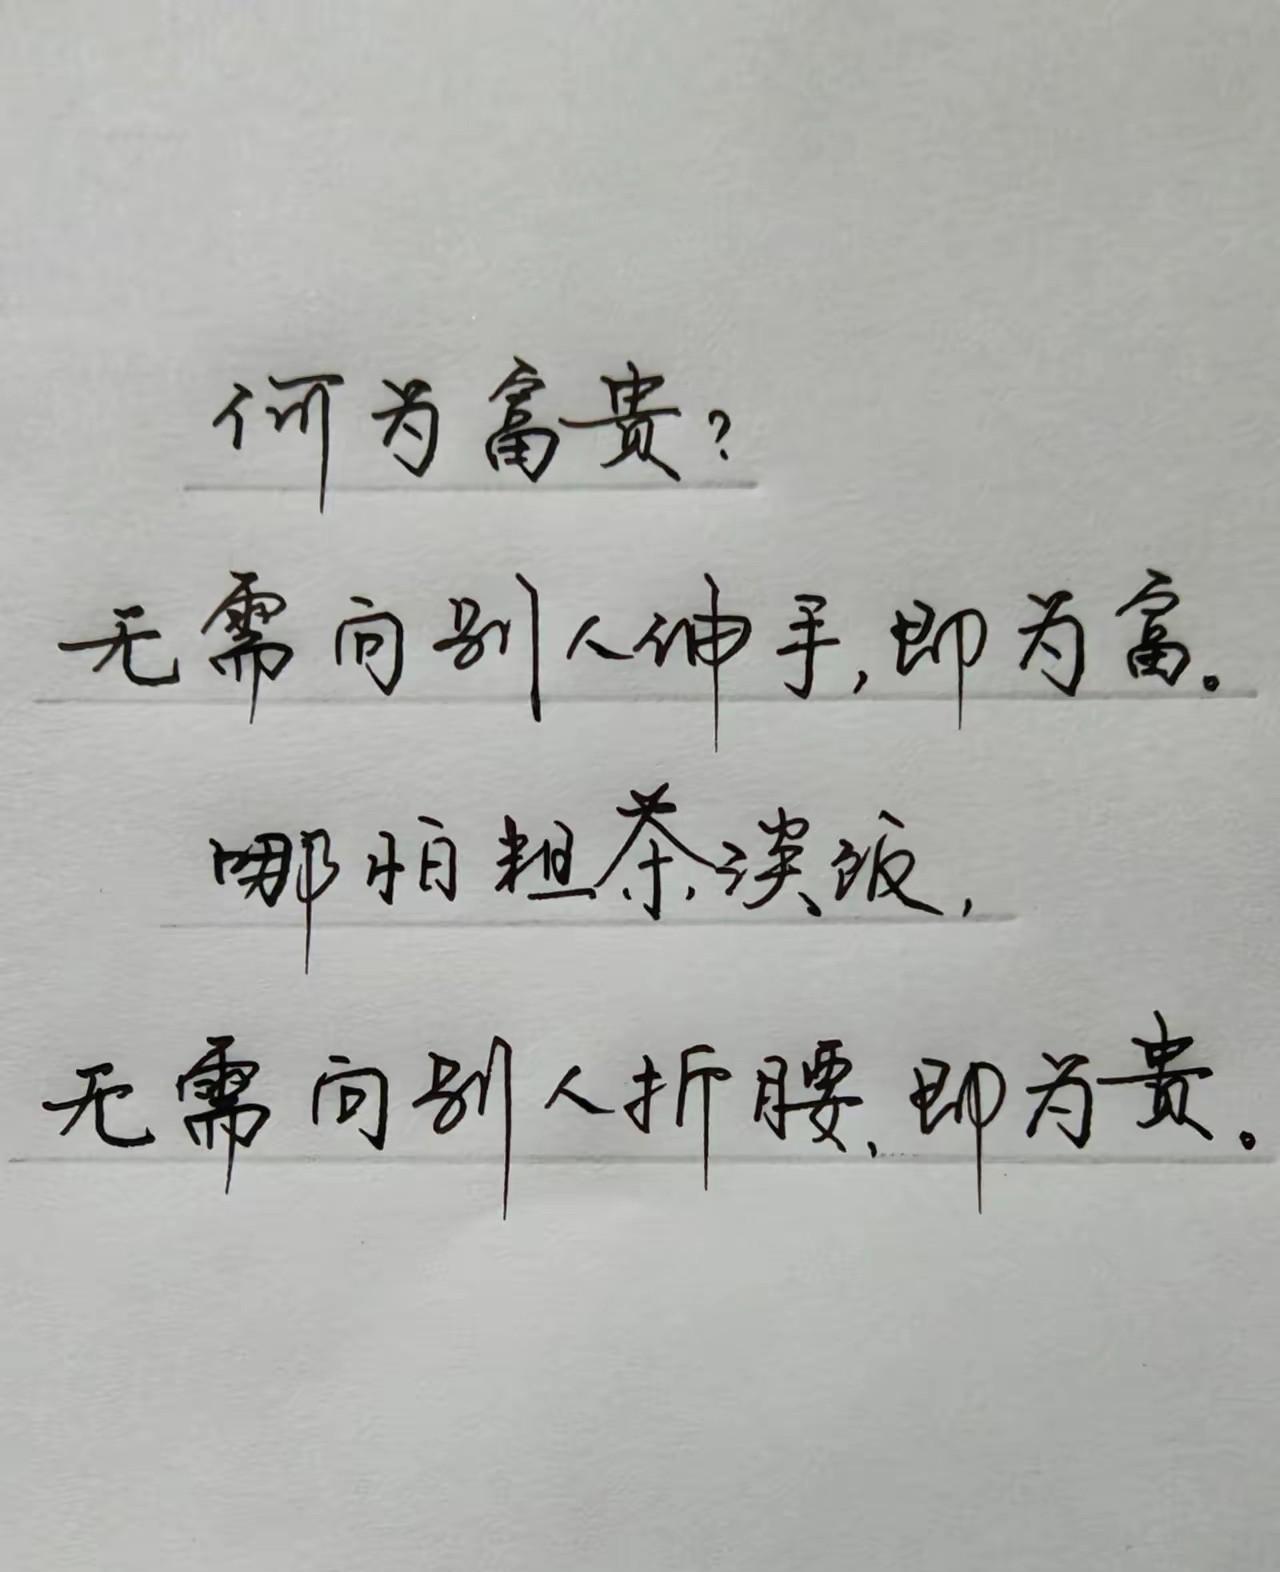 何为富贵？
无需向别人伸手，即为富。
哪怕粗茶淡饭，
无需向别人折腰，即为贵。